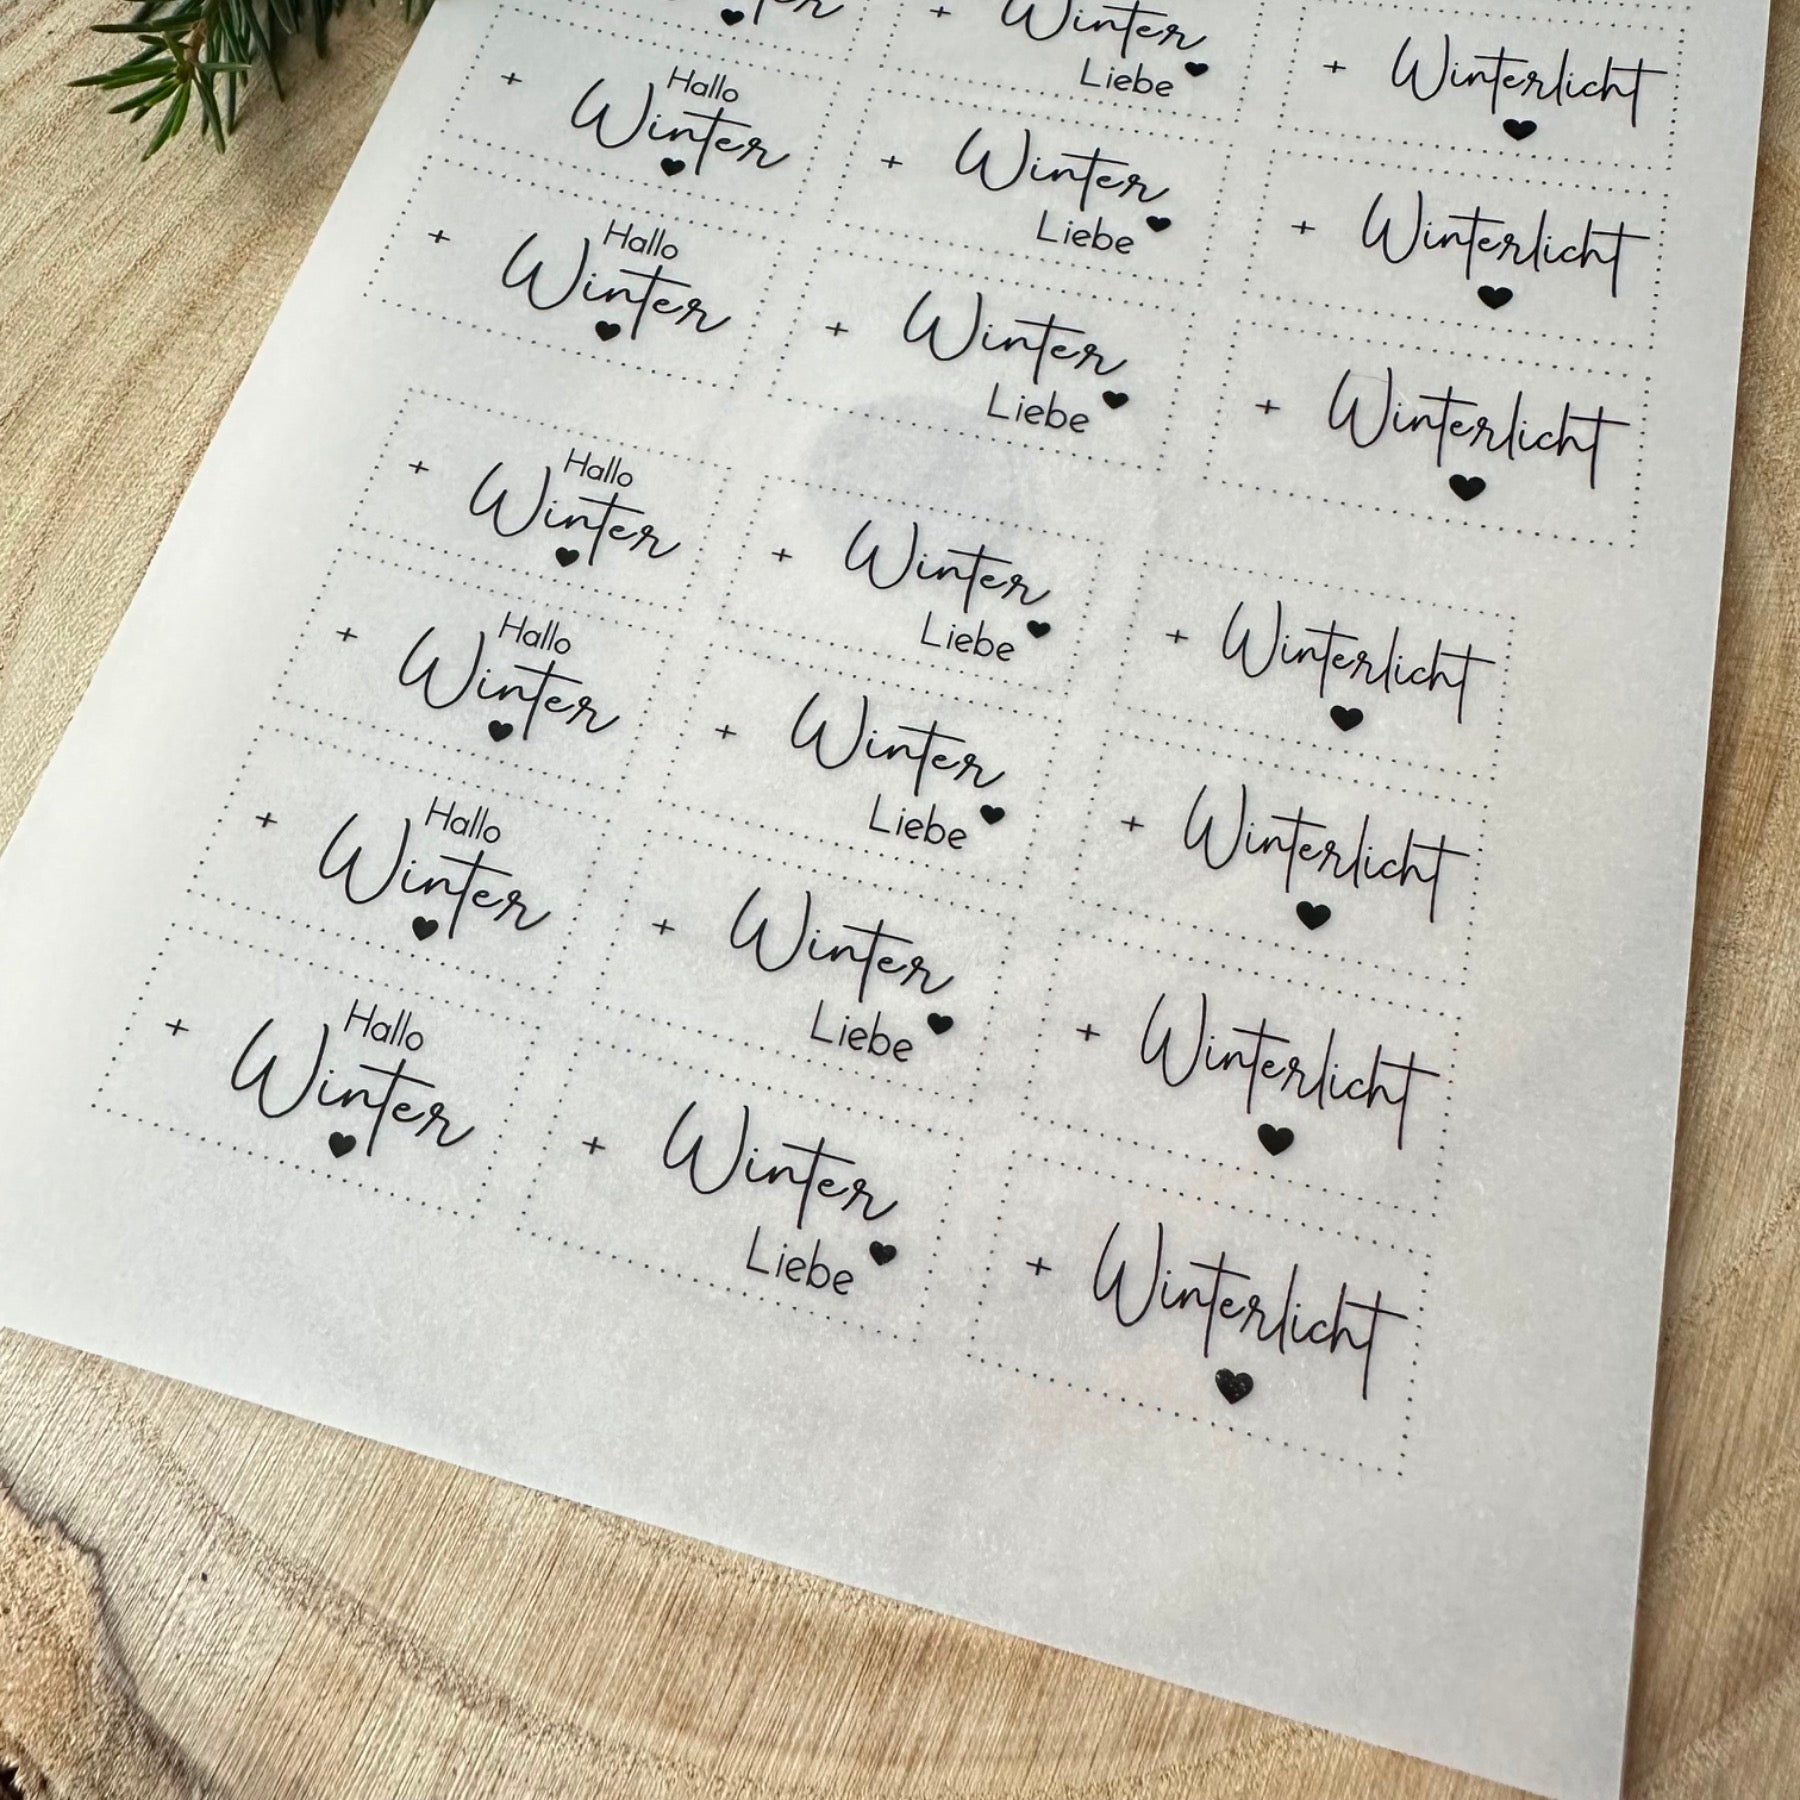 + Winter
Liebe ♥
+ Winterlicht
♥
+ Hallo
Winter
♥
+ Winter
Liebe ♥
+ Winterlicht
♥
+ Hallo
Winter
♥
+ Winter
Liebe ♥
+ Winterlicht
♥
+ Hallo
Winter
♥
+ Winter
Liebe ♥
+ Winterlicht
♥
+ Hallo
Winter
♥
+ Winter
Liebe ♥
+ Winterlicht
♥
+ Hallo
Winter
♥
+ Winter
Liebe ♥
+ Winterlicht
♥
+ Hallo
Winter
♥
+ Winter
Liebe ♥
+ Winterlicht
♥